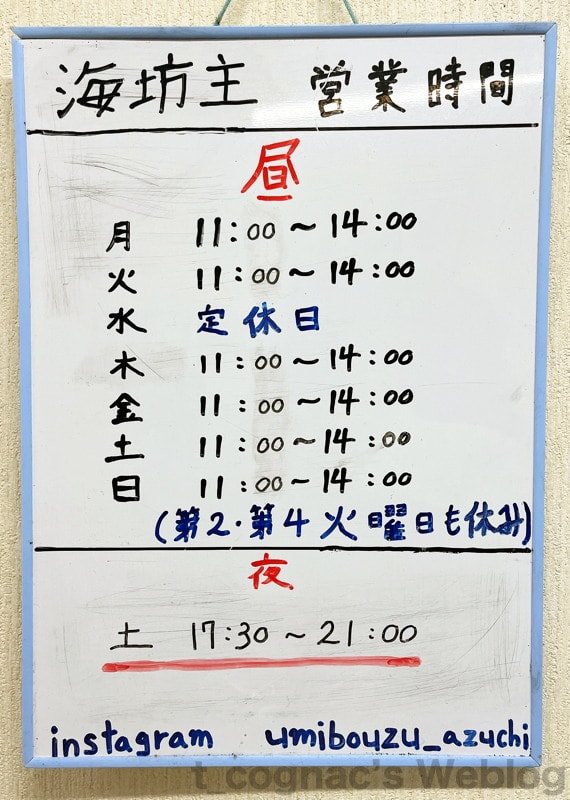 海坊主 営業時間
昼
月 11:00～14:00
火 11:00～14:00
水 定休日
木 11:00～14:00
金 11:00～14:00
土 11:00～14:00
日 11:00～14:00
(第2・第4火曜日も休み)
夜
土 17:30～21:00
instagram umibouzu_azuchi
t_cognac's Weblog